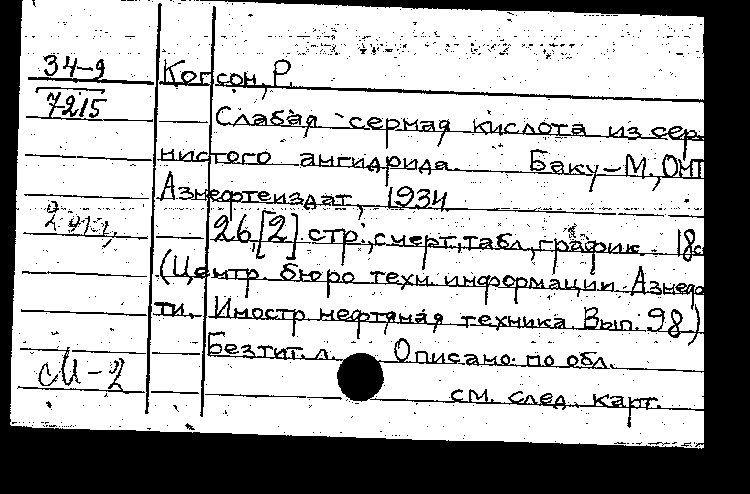 34-9
7215
Когсон, Р.
Слабая серная кислота из сер
нистого ангидрида. Баку-М., ОНТ
Азнефтеиздат, 1934
2 экз,
26,[2] стр., черт., табл., график. 18с
(Центр. бюро техн. информации Азнеф
ти. Иностр. нефтяная техника. Вып. 98)
Без тит. л. Описано по обл.
М-2
см. след. карт.